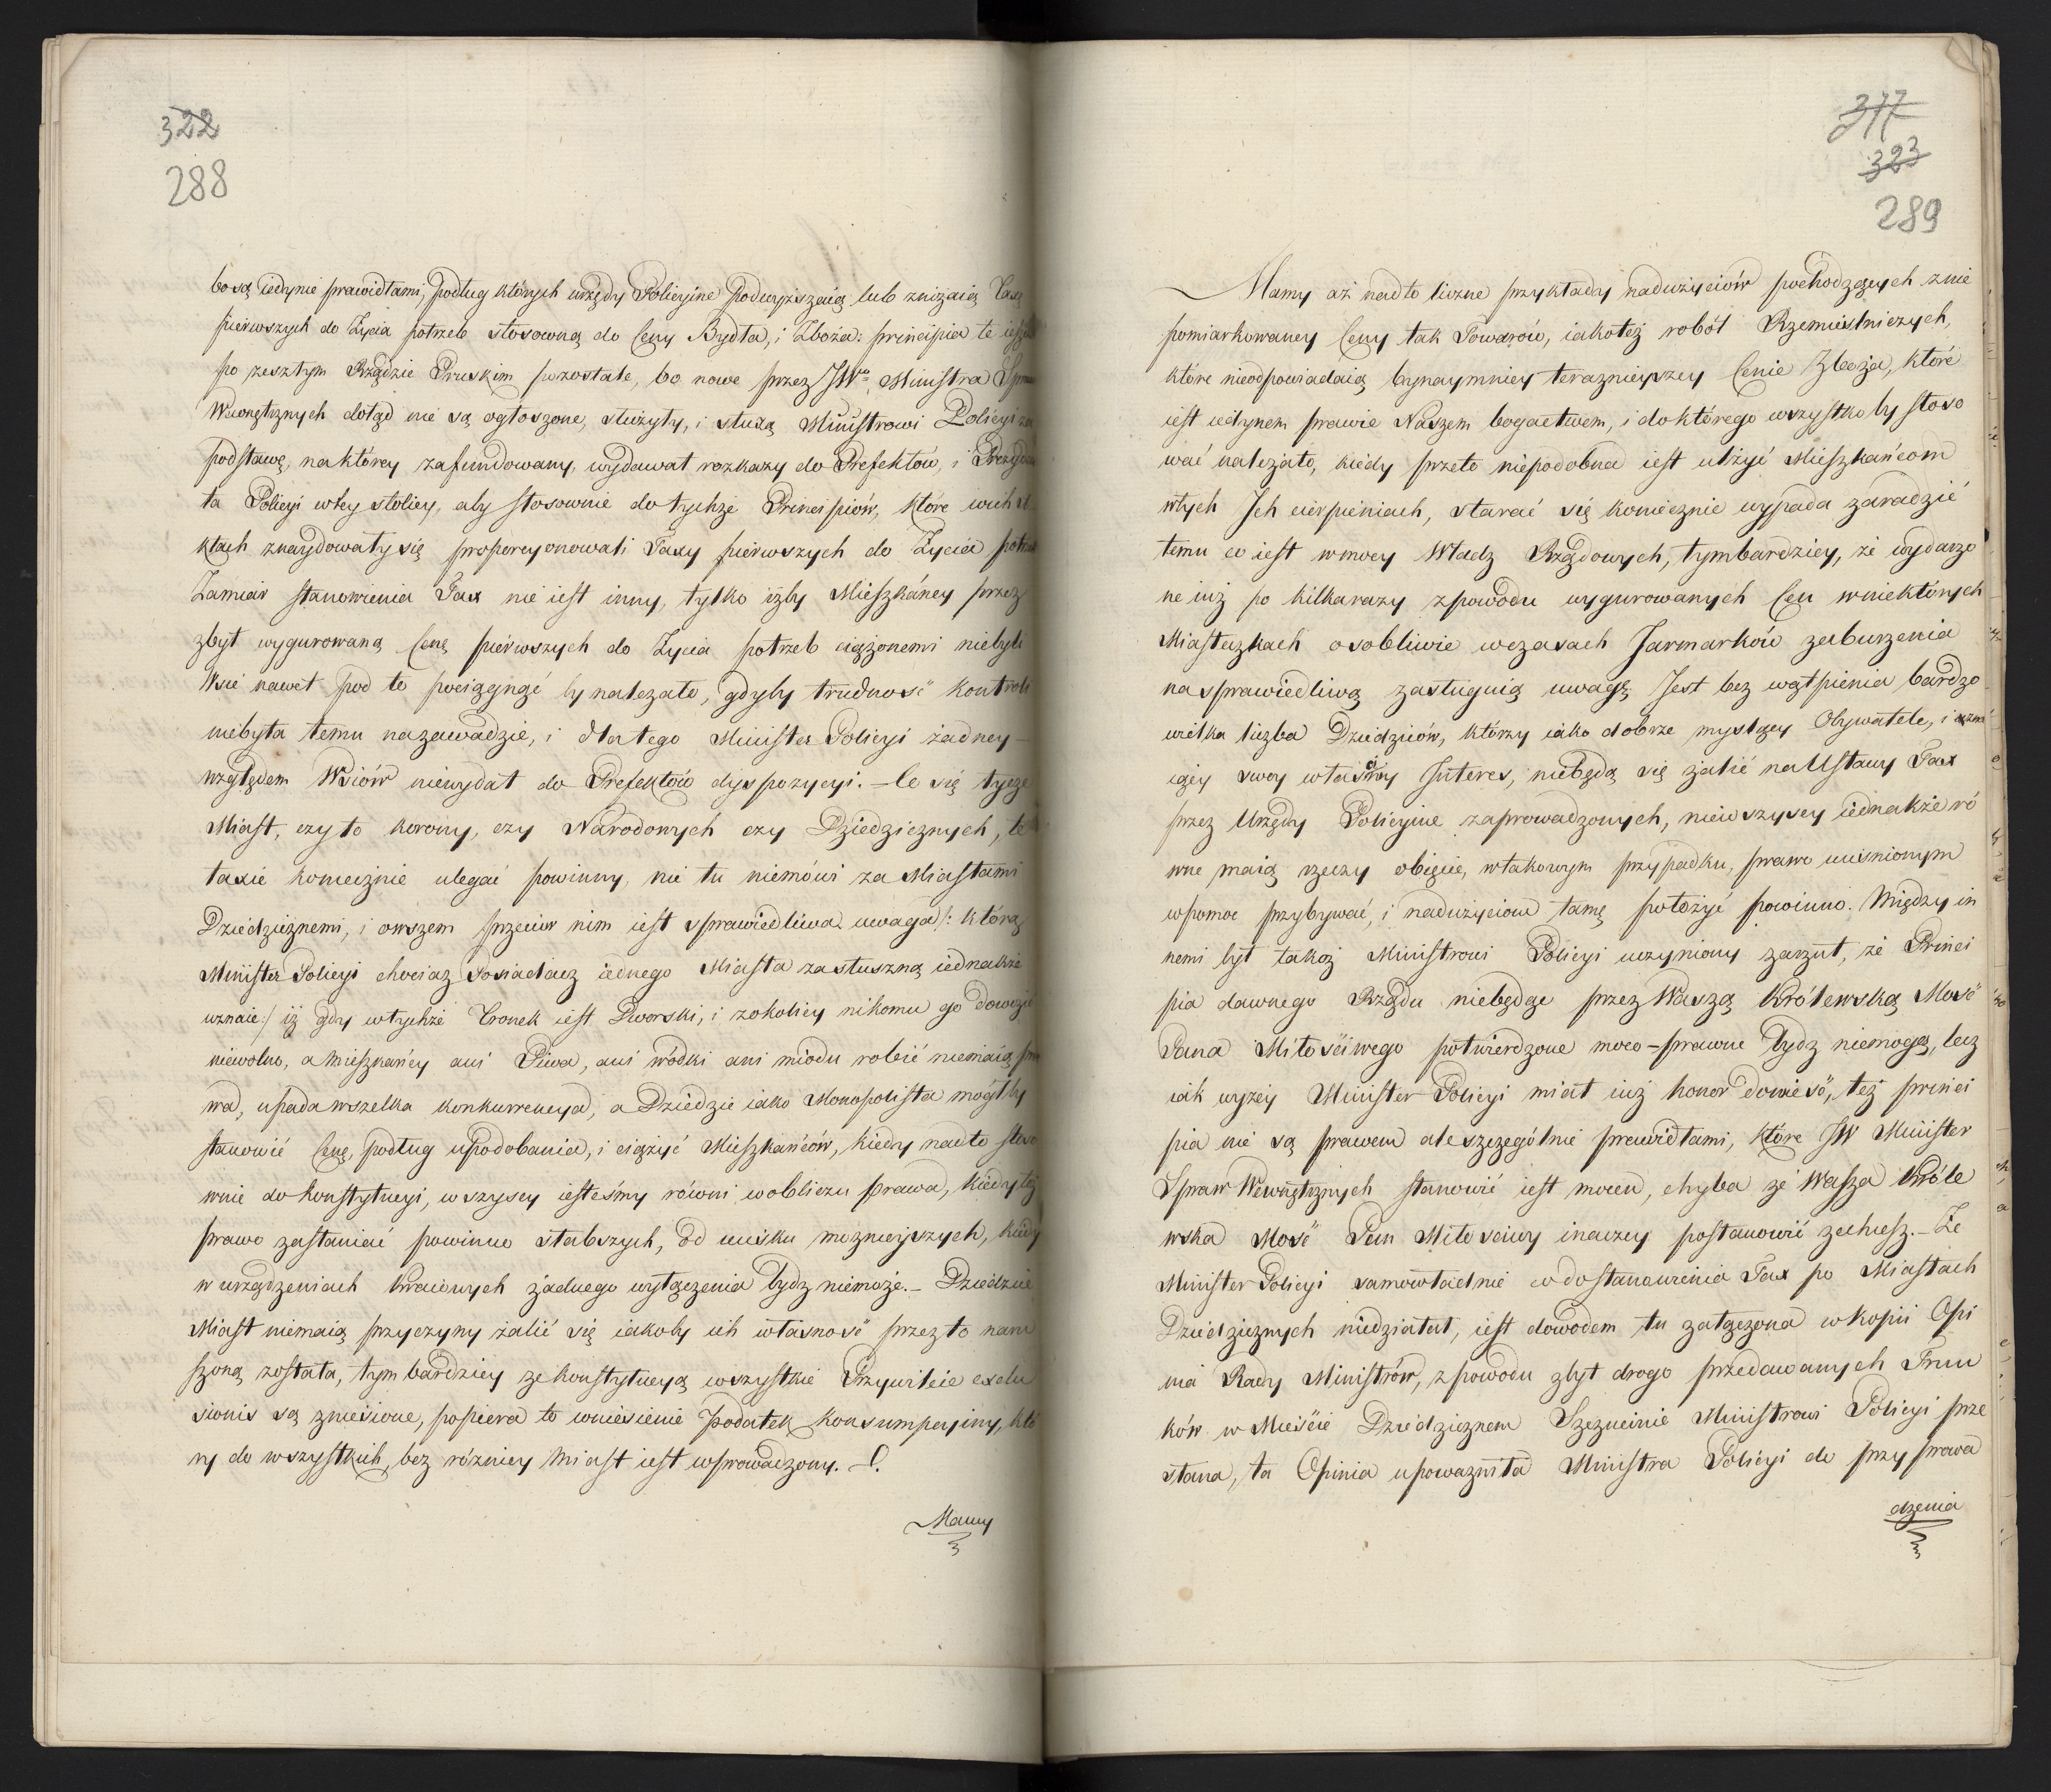 322
288
bo są iedynie prawidłami, podług których urzędy Policyine podwyższaią lub zniżaią Taxę
pierwszych do Życia potrzeb stosowną do Ceny Bydła, i Zboża: principia te ieszcze
po zeszłym Rządzie Pruskim pozostałe, bo nowe przez JWo Ministra Spraw
Wewnętrznych dotąd nie są ogłoszone, służyły, i służą Ministrowi Policyi za
podstawę, na którey zafundowany, wydawał rozkazy do Prefektów, i Prezyden
ta Policyi w tey stolicy, aby stosownie do tychże Principiów, które w ich
ktach znaydowały się proporcyonowali Taxy pierwszych do Życia potrzeb
Zamiar stanowienia Tax nie iest inny, tylko iżby Mieszkańcy przez
zbyt wygurowaną Cenę pierwszych do Życia potrzeb ciążonemi niebyli
Wsie nawet pod to pociągnąć by należało, gdyby trudność kontroli
niebyła temu na zawadzie, i dlatego Minister Policyi żadney
względem Wsiów niewydał do Prefektów dyspozycyi. – Co się tycze
Miast, czy to korony, czy Narodowych czy Dziedzicznych, te
taxie koniecznie ulegać powinny, nic tu niemówi za Miastami
Dziedzicznemi, i owszem przeciw nim iest sprawiedliwa uwaga /: którą
Minister Policyi chociaż Posiadacz iednego Miasta za słuszną iednakże
uznaie :/ iż gdy w tychże Tronek iest Dworski, i z okolicy nikomu go dowozić
niewolno, a mieszkańcy ani Piwa, ani wódki ani miodu robić niemaią pra
wa, upada wszelka konkurrencya, a Dziedzic iako Monopolista mógłby
stanowić Cenę, podług upodobania, i ciążyć Mieszkańców, kiedy nadto stoso
wnie do Konstytucyi, wszyscy iesteśmy równi w obliczu prawa, kiedy też
prawo zasłaniać powinno słabszych, od ucisku możnieyszych, kiedy
w urządzeniach kraiowych żadnego wyłączenia bydź niemoże. – Dziedzice
Miast niemaią przyczyny żalić się iakoby ich własność przez to naru
szoną została, tym bardziey że konstytucyą wszystkie Przywileie exclu
sionis są zniesione, popiera to wniesienie podatek konsumpcyiny, któ
ry do wszystkich, bez różnicy Miast iest wprowadzony. –
Mamy
317
323
289
Mamy aż nadto liczne przykłady nadużyciów pochodzących z nie
pomiarkowaney Ceny tak Towarów, iakoteż robót Rzemieślniczych,
które nieodpowiadaią bynaymniey teraznieyszey Cenie Zboża, które
iest iedynem prawie Naszem bogactwem, i do którego wszystko by stoso
wać należało, kiedy przeto niepodobna iest ulżyć Mieszkańcom
w tych Ich cierpieniach, starać się koniecznie wypada zaradzić
temu co iest w mocy Władz Rządowych, tymbardziey, że wydarzo
ne iuż po kilka razy z powodu wygurowanych Cen w niektórych
Miasteczkach osobliwie w czasach Jarmarków zaburzenia
na sprawiedliwą zasługuią uwagę. Jest bez wątpienia bardzo
wielka liczba Dziedziców, którzy iako dobrze myślący Obywatele, i
cący swoy własny Interes, niebędą się żalić na Ustawy Tax
przez Urzędy Policyine zaprowadzonych, nie wszyscy iednakże ró
wne maią rzeczy obięcie, w takowym przypadku, prawo uciśnionym
w pomoc przybywać, i nadużyciom tamę położyć powinno. Między in
nemi był takoż Ministrowi Policyi uczyniony zarzut, że Princi
pia dawnego Rządu niebędąc przez Waszą Królewską Mość
Pana Miłościwego potwierdzone moco-prawne bydz niemogą, lecz
iak wyżey Minister Policyi miał iuż honor donieść, też princi
pia nie są prawem ale szczególnie prawidłami, które JW Minister
Spraw Wewnętrznych stanowić iest mocen, chyba że Wasza Króle
wska Mość Pan Miłościwy inaczey postanowić zechcesz. – Że
Minister Policyi samowładnie co do stanowienia Tax po Miastach
Dziedzicznych niedziałał, iest dowodem tu załączona w kopii Opi
nia Rady Ministrów, z powodu zbyt drogo przedawanych Trun
ków w Mieście Dziedzicznem Szczucinie Ministrowi Policyi prze
słana, ta Opinia upoważniła Ministra Policyi do przyprowa
dzenia